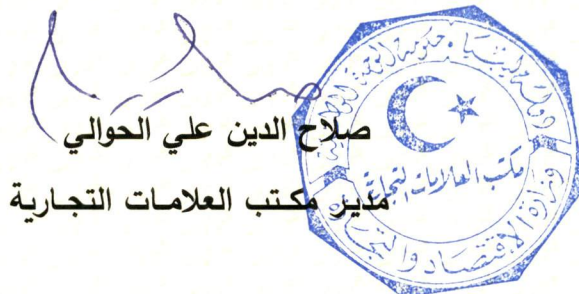 صلاح الدين علي الحوالي
مدير مكتب العلامات التجارية
دولة ليبيا . حكومة الوحدة الوطنية
مكتب العلامات التجارية
وزارة الاقتصاد والتجارة